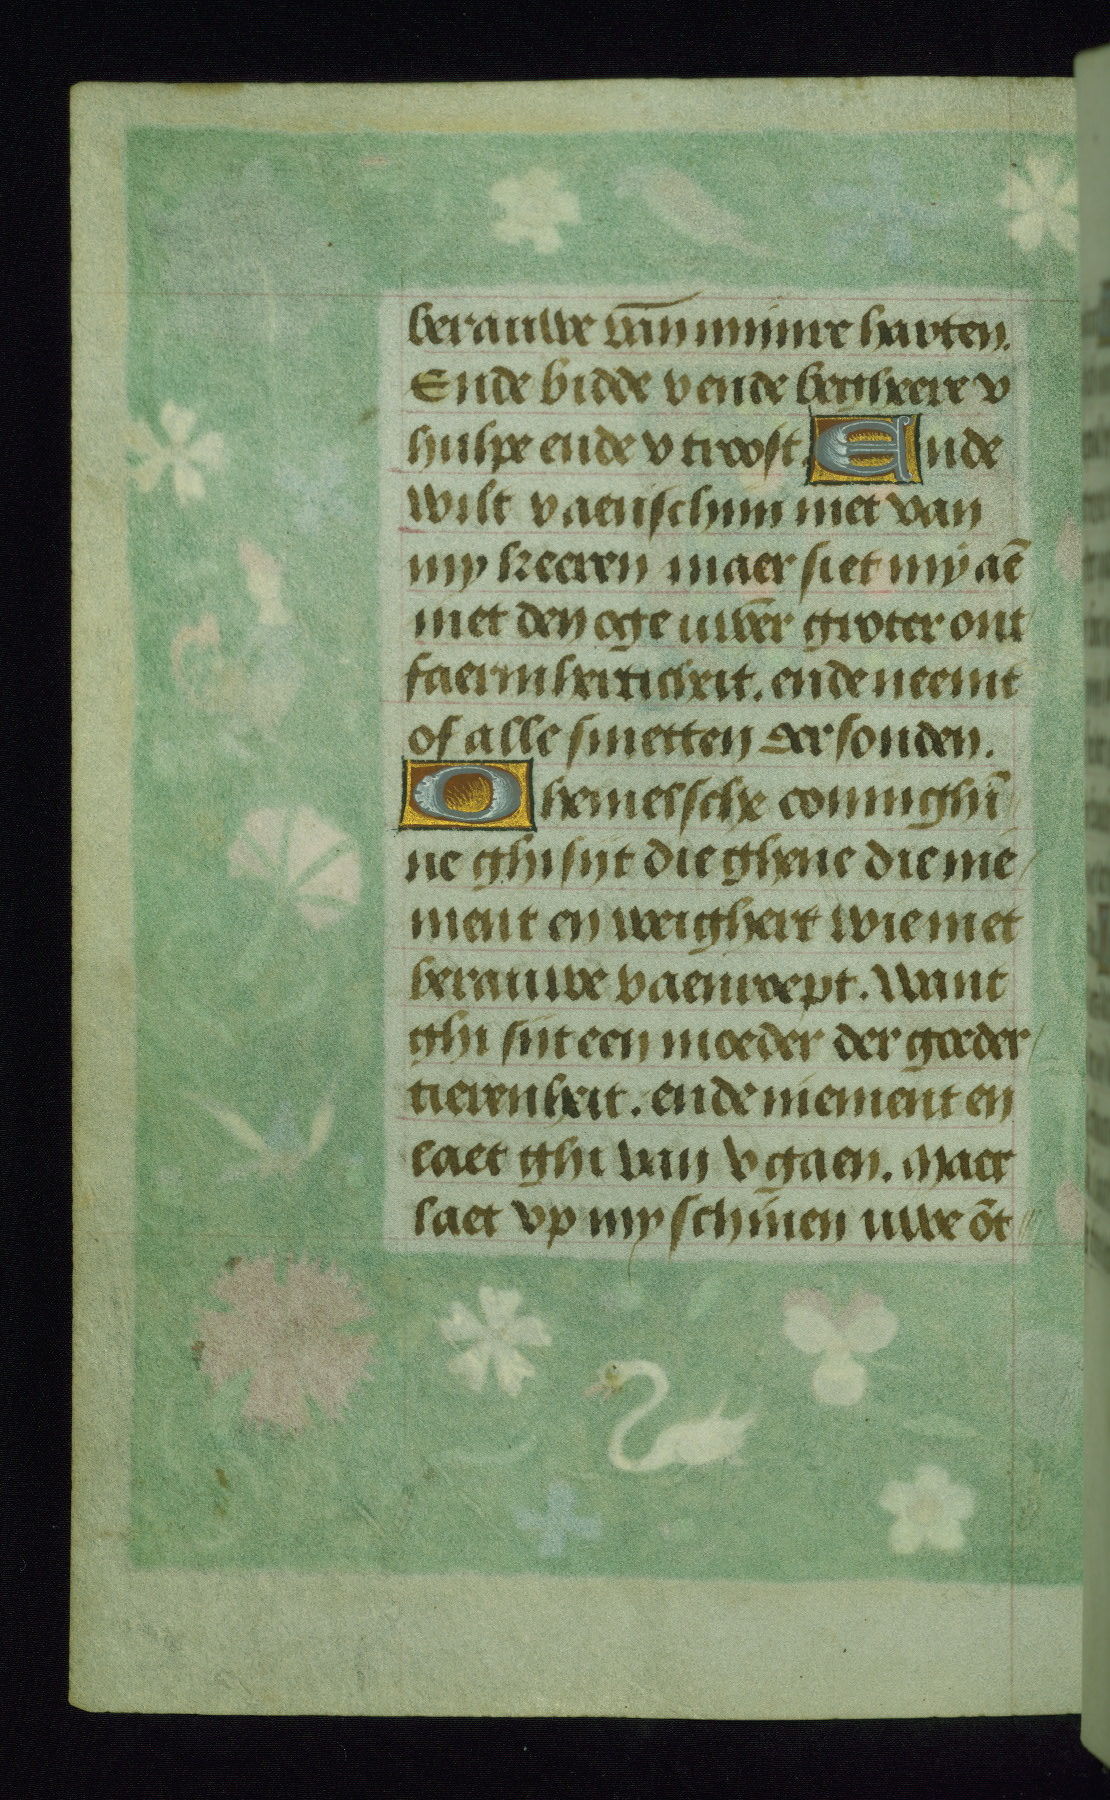 berauwe vā mijnre harten.
Ende bidde v ende begheere v
hulpe ende v troost. Ende
wilt v aenschijn niet van
my keeren maer siet my aē
met den oge uwēr groter ont
faermherticheit. ende neemt
of alle smetten der sonden.
O hemelsche coninghī
ne ghi sijt die ghene die nie
ment en weighert wie met
berauwe v aenroept. Want
ghi sijt een moeder der goeder
tierenheit. ende niement en
laet ghi van v gaen. Maer
laet vp my schinen uwe ōt